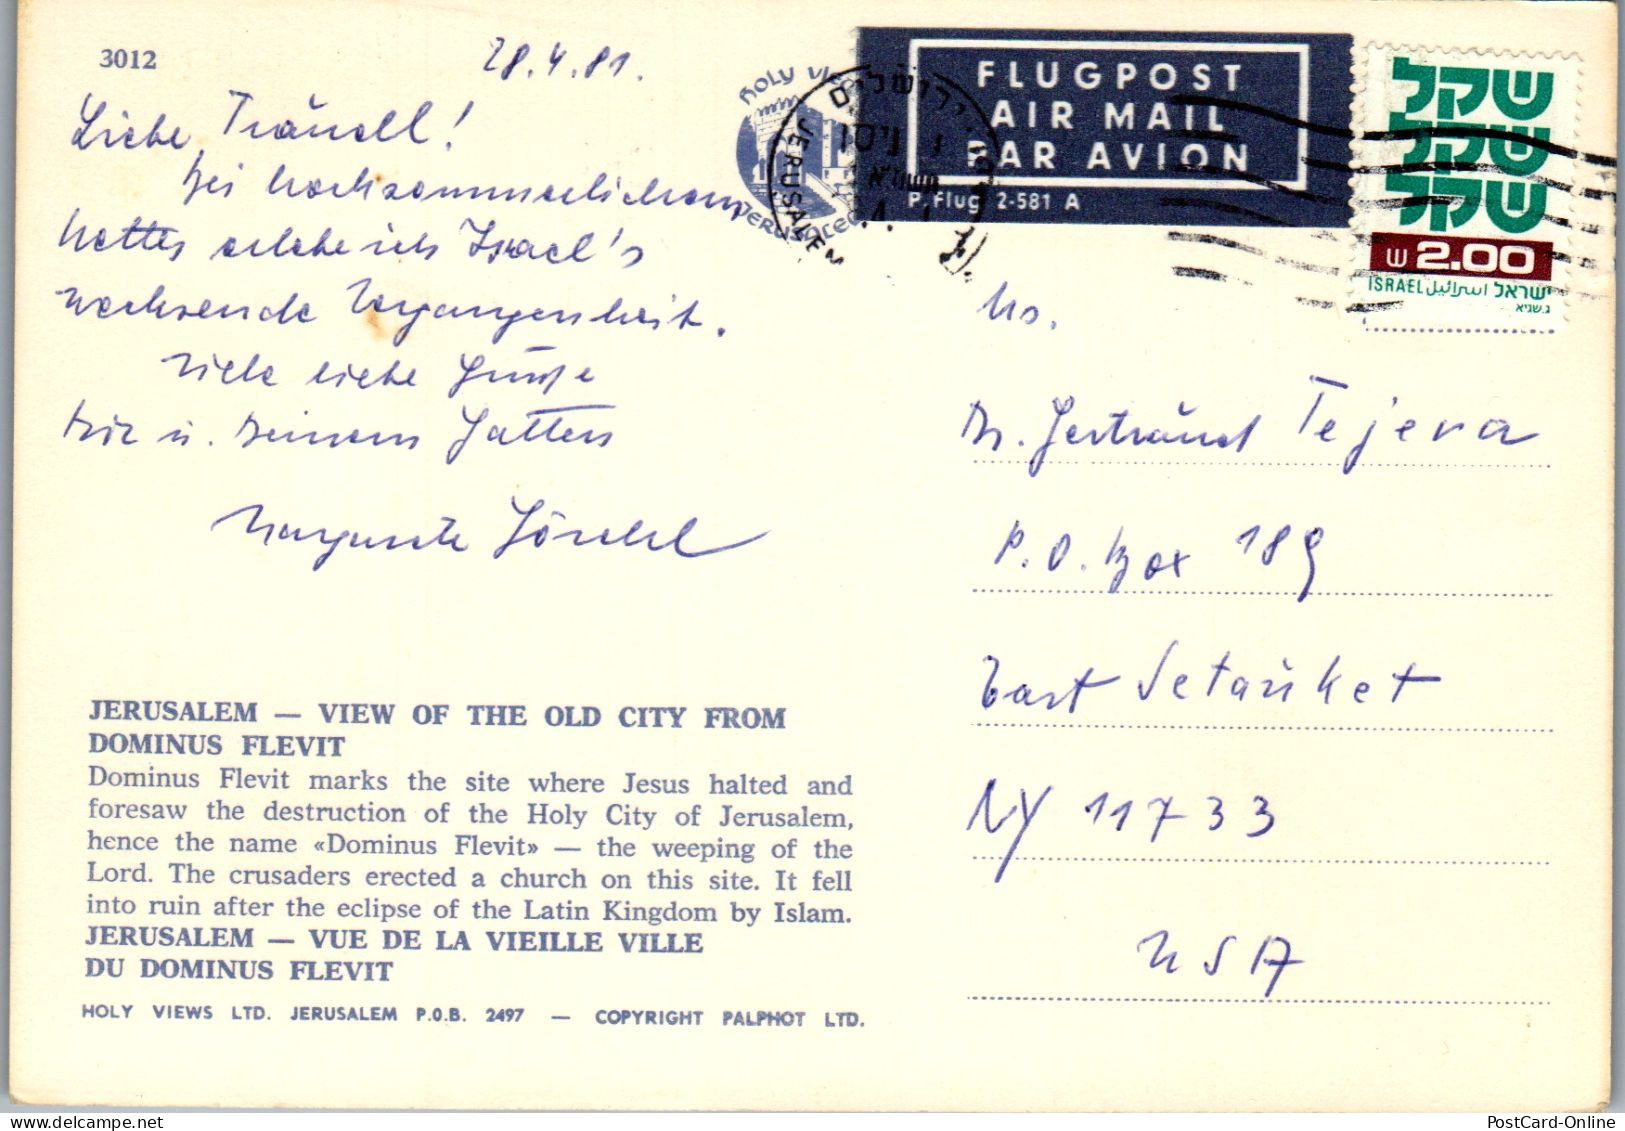 3012
28.4.81.
Liebe Träudl!
bei hochsommerlichem
Wetter erlebe ich Israel's
wachsende Vergangenheit.
Viele liebe Grüße
Dir u. Deinem Gatten
Margarete
HOLY VIEWS
JERUSALEM
ירושלים
JERUSALEM
FLUGPOST
AIR MAIL
PAR AVION
P. Flug 2-581 A
שקל
שקל
שקל
2.00
ISRAEL اسرائيل ישראל
Dr. Gertraud Tejera
P.O. Box 189
East Setauket
NY 11733
USA
JERUSALEM — VIEW OF THE OLD CITY FROM
DOMINUS FLEVIT
Dominus Flevit marks the site where Jesus halted and
foresaw the destruction of the Holy City of Jerusalem,
hence the name «Dominus Flevit» — the weeping of the
Lord. The crusaders erected a church on this site. It fell
into ruin after the eclipse of the Latin Kingdom by Islam.
JERUSALEM — VUE DE LA VIEILLE VILLE
DU DOMINUS FLEVIT
HOLY VIEWS LTD. JERUSALEM P.O.B. 2497 — COPYRIGHT PALPHOT LTD.
PostCard-Online